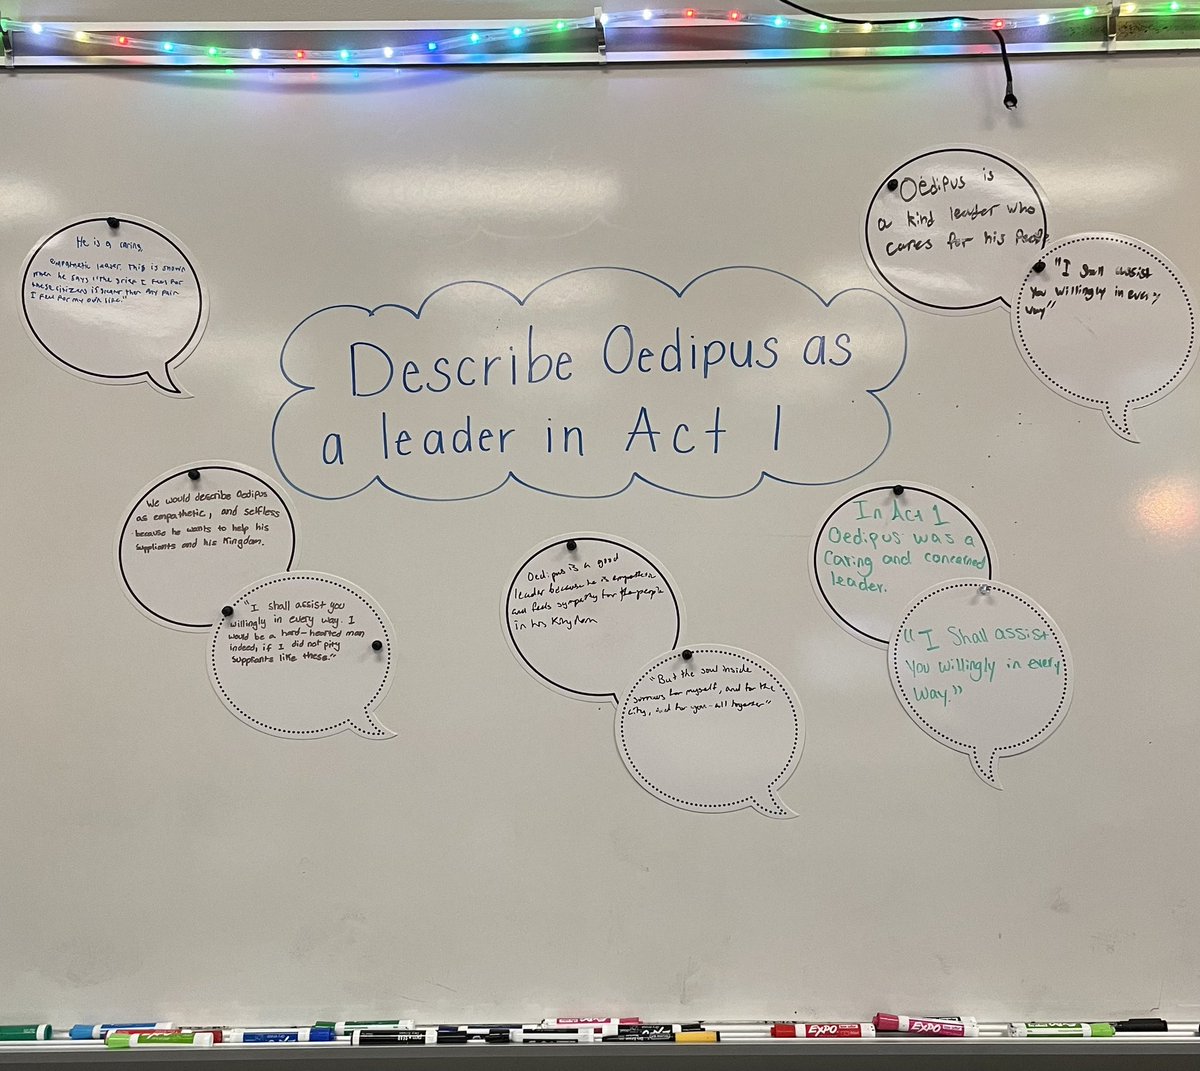 Describe Oedipus as
a leader in Act 1
He is a caring,
empathetic leader. This is shown
when he says "the grief I feel for
these citizens is greater than any pain
I feel for my own life."
Oedipus is
a kind leader who
cares for his People
"I Shall assist
You willingly in every
way"
We would describe Oedipus
as empathetic, and selfless
because he wants to help his
suppliants and his Kingdom.
"I shall assist you
willingly in every way. I
would be a hard-hearted man
indeed, if I did not pity
suppliants like these."
Oedipus is a good
leader because he is empathetic
and feels sympathy for the people
in his Kingdom
"But the soul inside
sorrows for myself, and for the
city, and for you-all together"
In Act 1
Oedipus was a
Caring and concerned
leader.
"I Shall assist
You willingly in every
way."
EXPO
EXPO